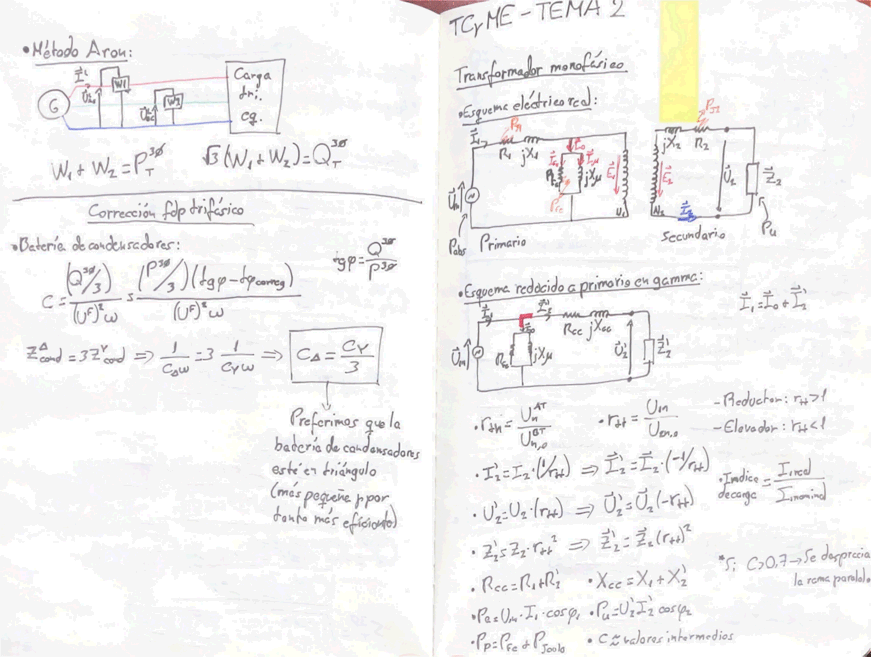 •Método Aron:
W1
W2
G
Carga
tri.
eq.
W₁ + W₂ = P_T^3Ø
√3(W₁ + W₂) = Q_T^3Ø
Corrección fdp trifásico
•Batería de condensadores:
tgφ = Q^3Ø / P^3Ø
C = (Q^3Ø/3) / (U^F)² ω = (P^3Ø/3)(tgφ - tgφ correg) / (U^F)² ω
Z^Δ cond = 3 Z^Y cond ⇒ 1/C_Δω = 3 1/C_Yω ⇒ C_Δ = C_Y/3
Preferimos que la
batería de condensadores
esté en triángulo
(más pequeña y por
tanto más eficiente)
TCyME - TEMA 2
Transformador monofásico
•Esquema eléctrico real:
R₁ jX₁
jX₂ R₂
Pabs
Primario
Secundario
Pu
•Esquema reducido a primario en gamma:
I⃗₁ = I⃗₀ + I⃗₂'
Rcc jXcc
•rtn = Un^AT / Un,o^BT
•rtt = U1n / U2n,o
-Reductor: rtt > 1
-Elevador: rtt < 1
•I₂' = I₂·(1/rtt) ⇒ I⃗₂' = I⃗₂·(-1/rtt)
•Indice de carga = I real / I nominal
•U₂' = U₂·(rtt) ⇒ U⃗₂' = U⃗₂(-rtt)
•Z₂' = Z₂·rtt² ⇒ Z⃗₂' = Z⃗₂(rtt)²
*Si C>0,7 → Se desprecia
la rama paralelo
•Rcc = R₁ + R₂'
•Xcc = X₁ + X₂'
•Pa = U₁n·I₁·cosφ₁
•Pu = U₂' I₂' cosφ₂
•Pp = PFe + PJoule
•C ≈ valores intermedios